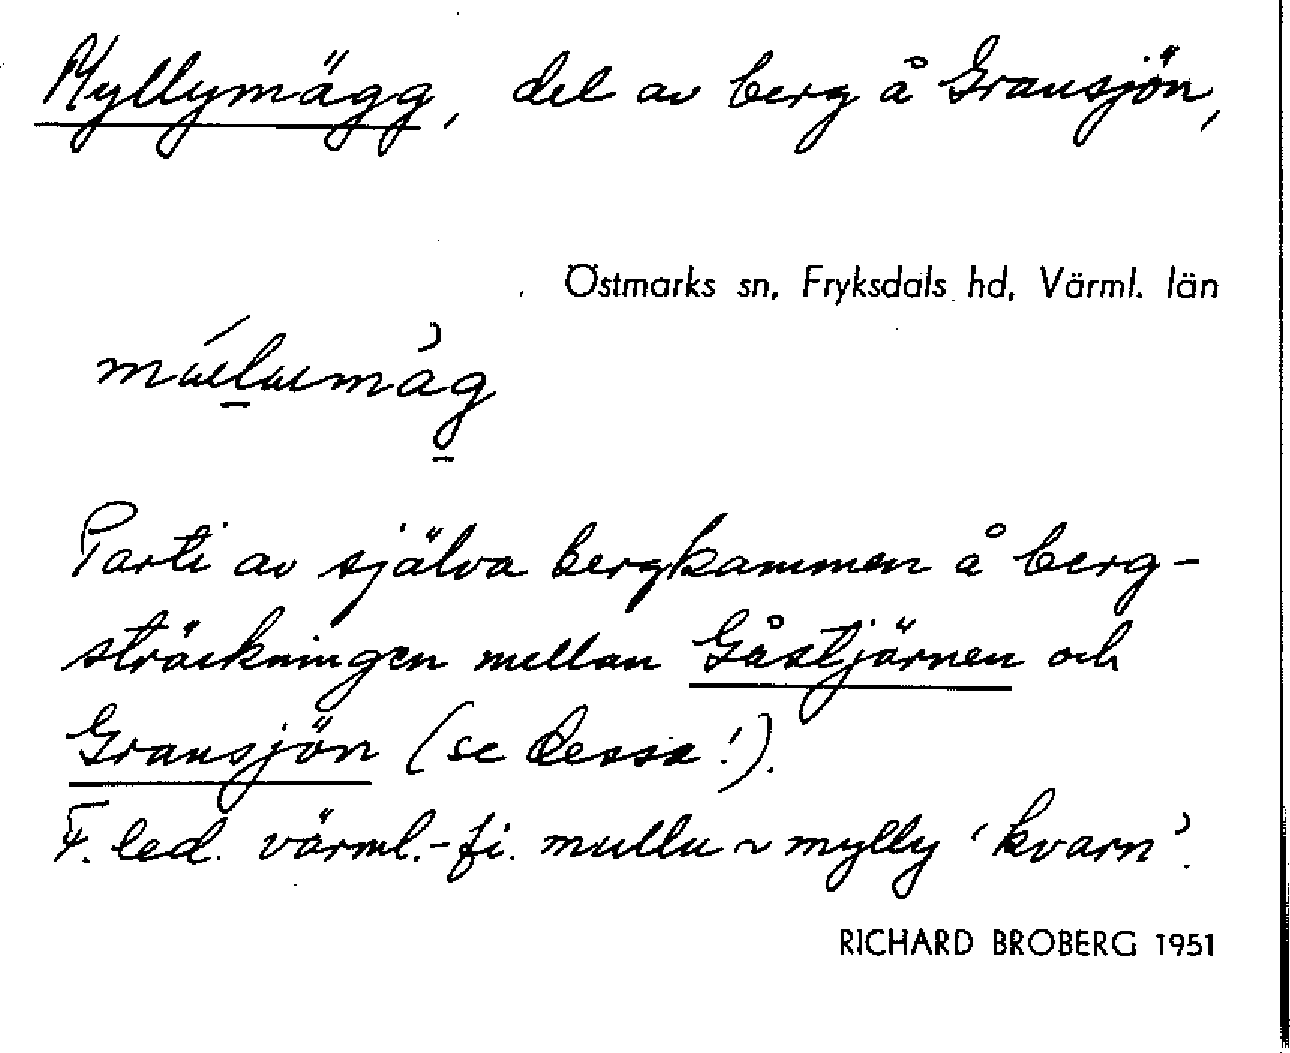 Myllymägg, del av berg å Gransjön,
Östmarks sn, Fryksdals hd, Värml. län
Parti av själva bergkammen å berg-
sträckningen mellan Gåstjärnen och
Gransjön (se dessa!).
F. led. värml.-fi. mullu ~ mylly ‘kvarn’.
RICHARD BROBERG 1951